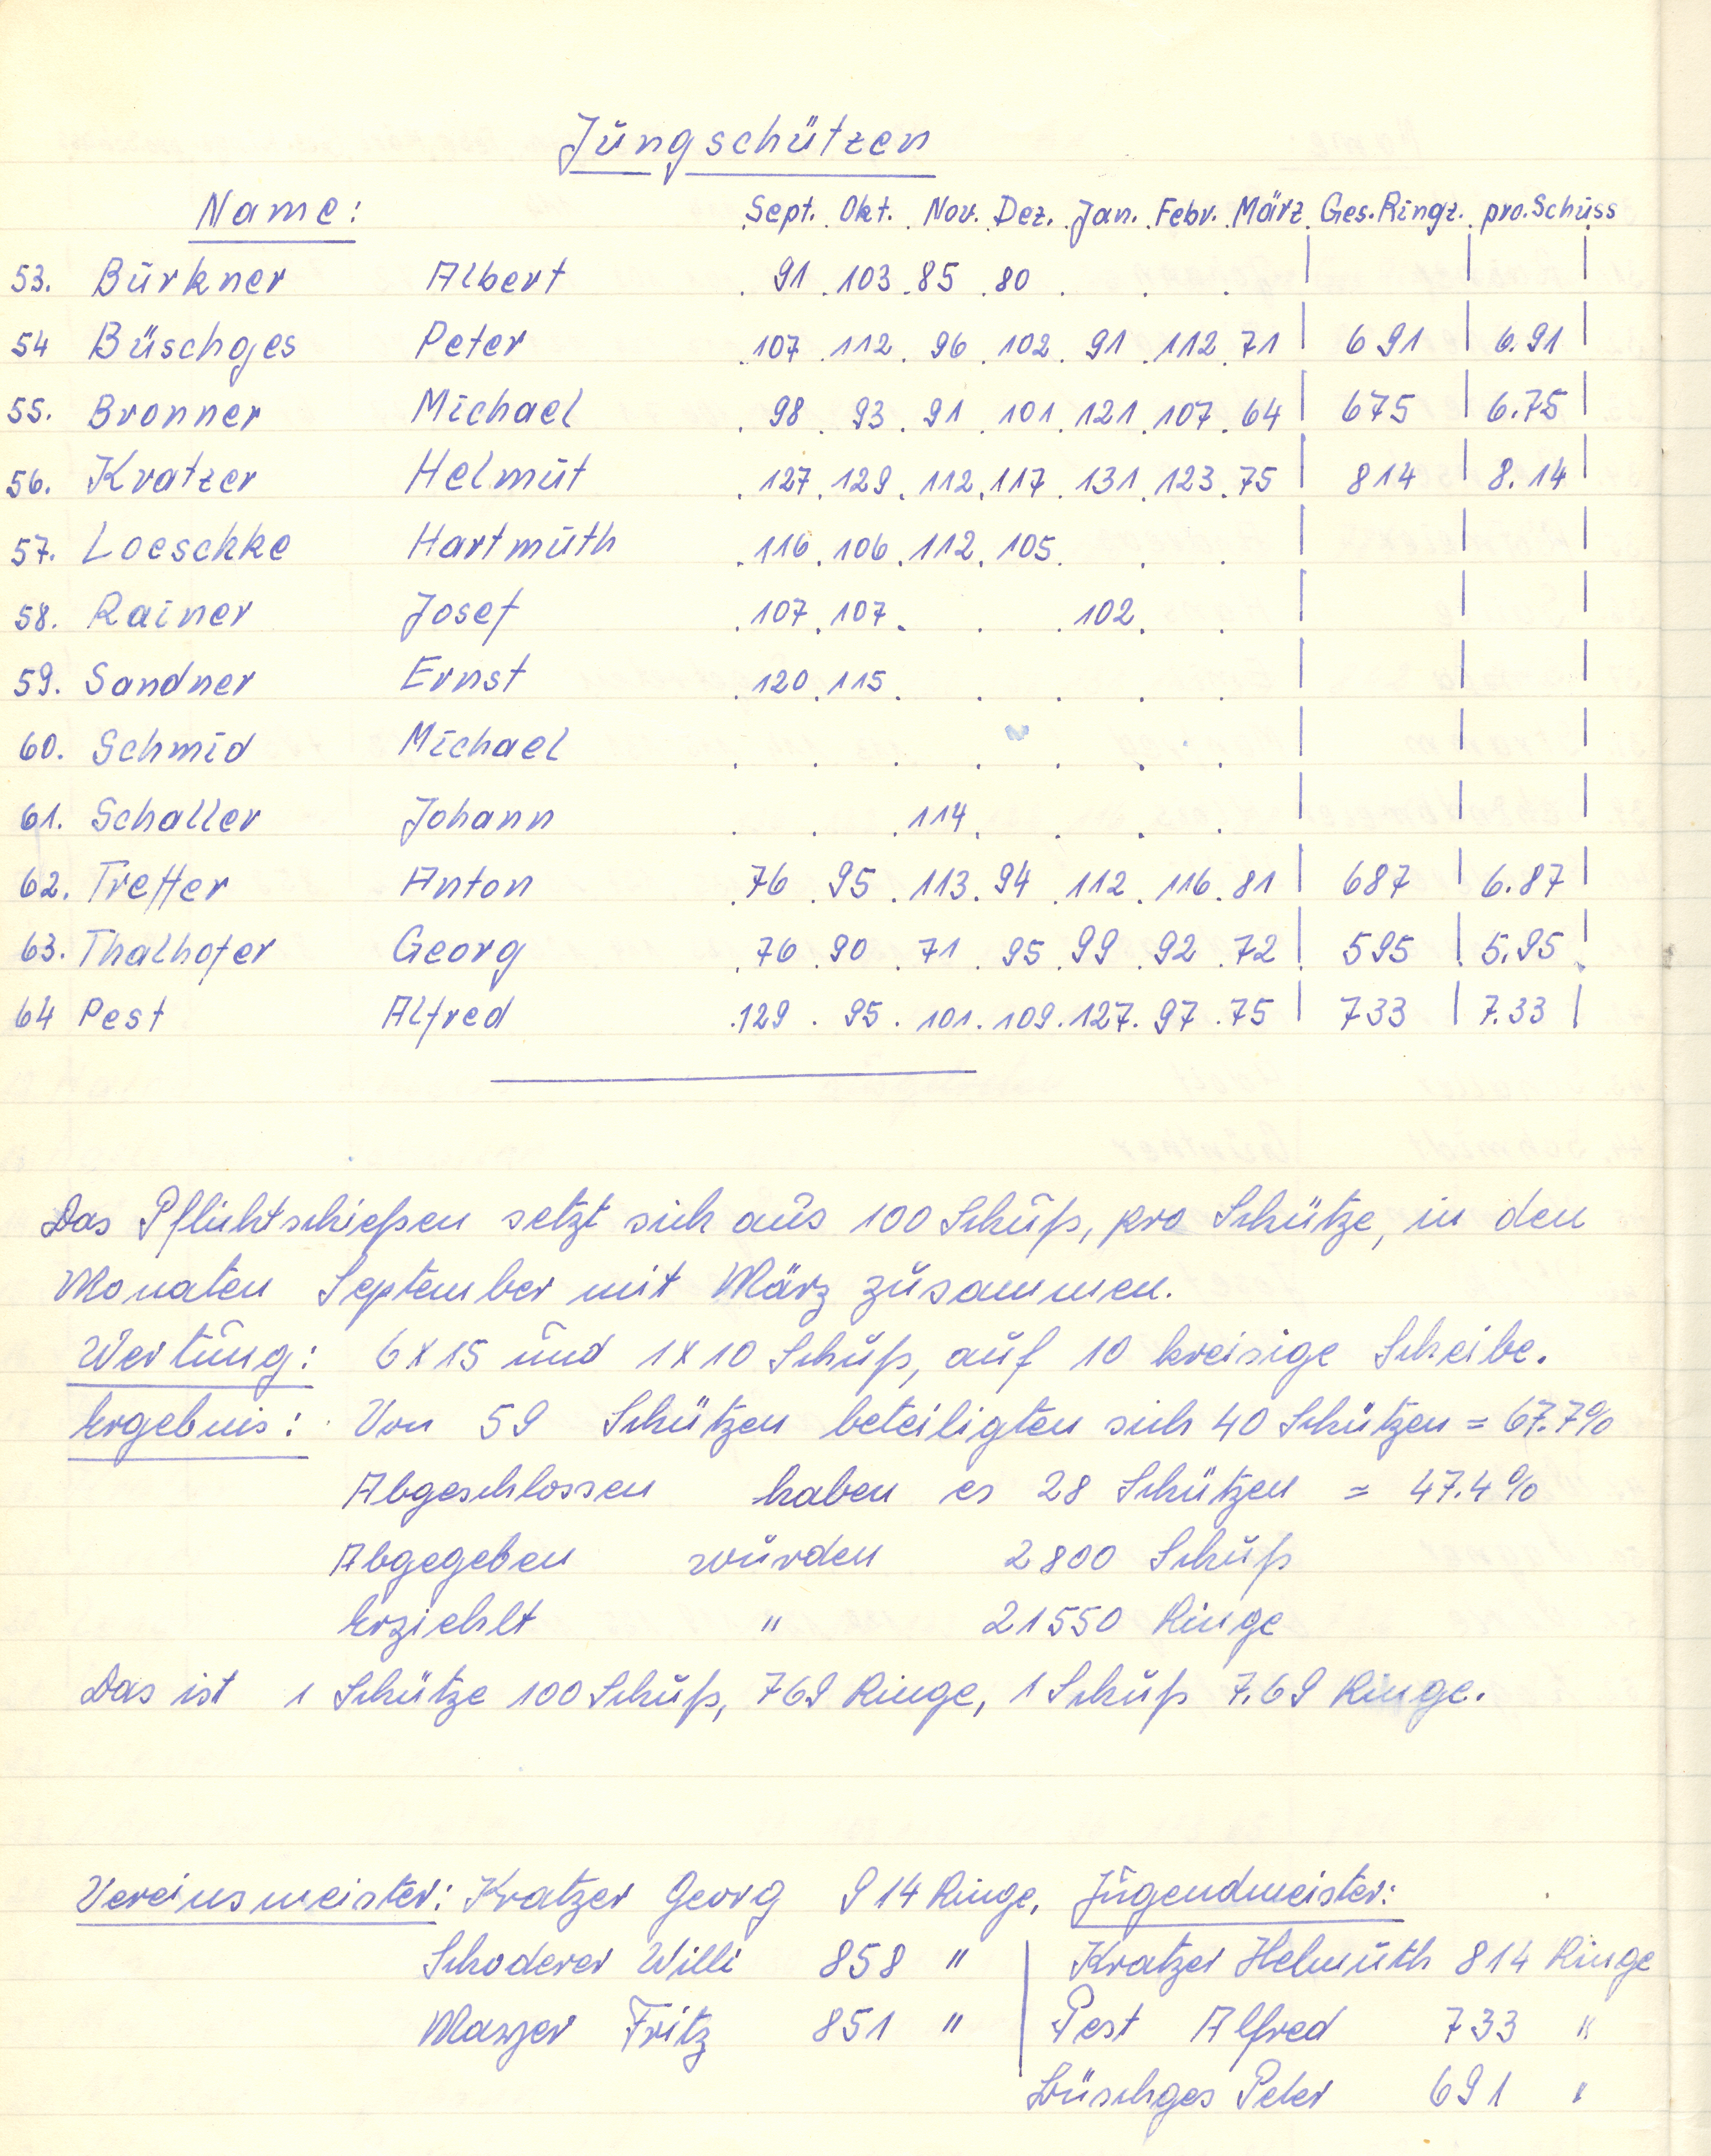 Jungschützen
Name: Sept. Okt. Nov. Dez. Jan. Febr. März Ges.Ringz. pro.Schuss
53. Burkner Albert 91 103 85 80
54 Büschges Peter 107 112 96 102 91 112 71 691 6.91
55. Bronner Michael 98 93 91 101 121 107 64 675 6.75
56. Kratzer Helmut 127 129 112 117 131 123 75 814 8.14
57. Loeschke Hartmuth 116 106 112 105
58. Rainer Josef 107 107 102
59. Sandner Ernst 120 115
60. Schmid Michael
61. Schaller Johann 114
62. Treffer Anton 76 95 113 94 112 116 81 687 6.87
63. Thalhofer Georg 76 90 71 95 99 92 72 595 5.95
64 Pest Alfred 129 95 101 109 127 97 75 733 7.33
Das Pflichtschießen setzt sich aus 100 Schuß, pro Schütze, in den
Monaten September mit März zusammen.
Wertung: 6x15 und 1x10 Schuß, auf 10 kreisige Scheibe.
Ergebnis: Von 59 Schützen beteiligten sich 40 Schützen = 67.7%
Abgeschlossen haben es 28 Schützen = 47.4%
Abgegeben wurden 2800 Schuß
Erziehlt " 21550 Ringe
Das ist 1 Schütze 100 Schuß, 769 Ringe, 1 Schuß 7.69 Ringe.
Vereinsmeister: Kratzer Georg 914 Ringe, Jugendmeister:
Schoderer Willi 858 " Kratzer Helmuth 814 Ringe
Mayer Fritz 851 " Pest Alfred 733 "
Büschges Peter 691 "